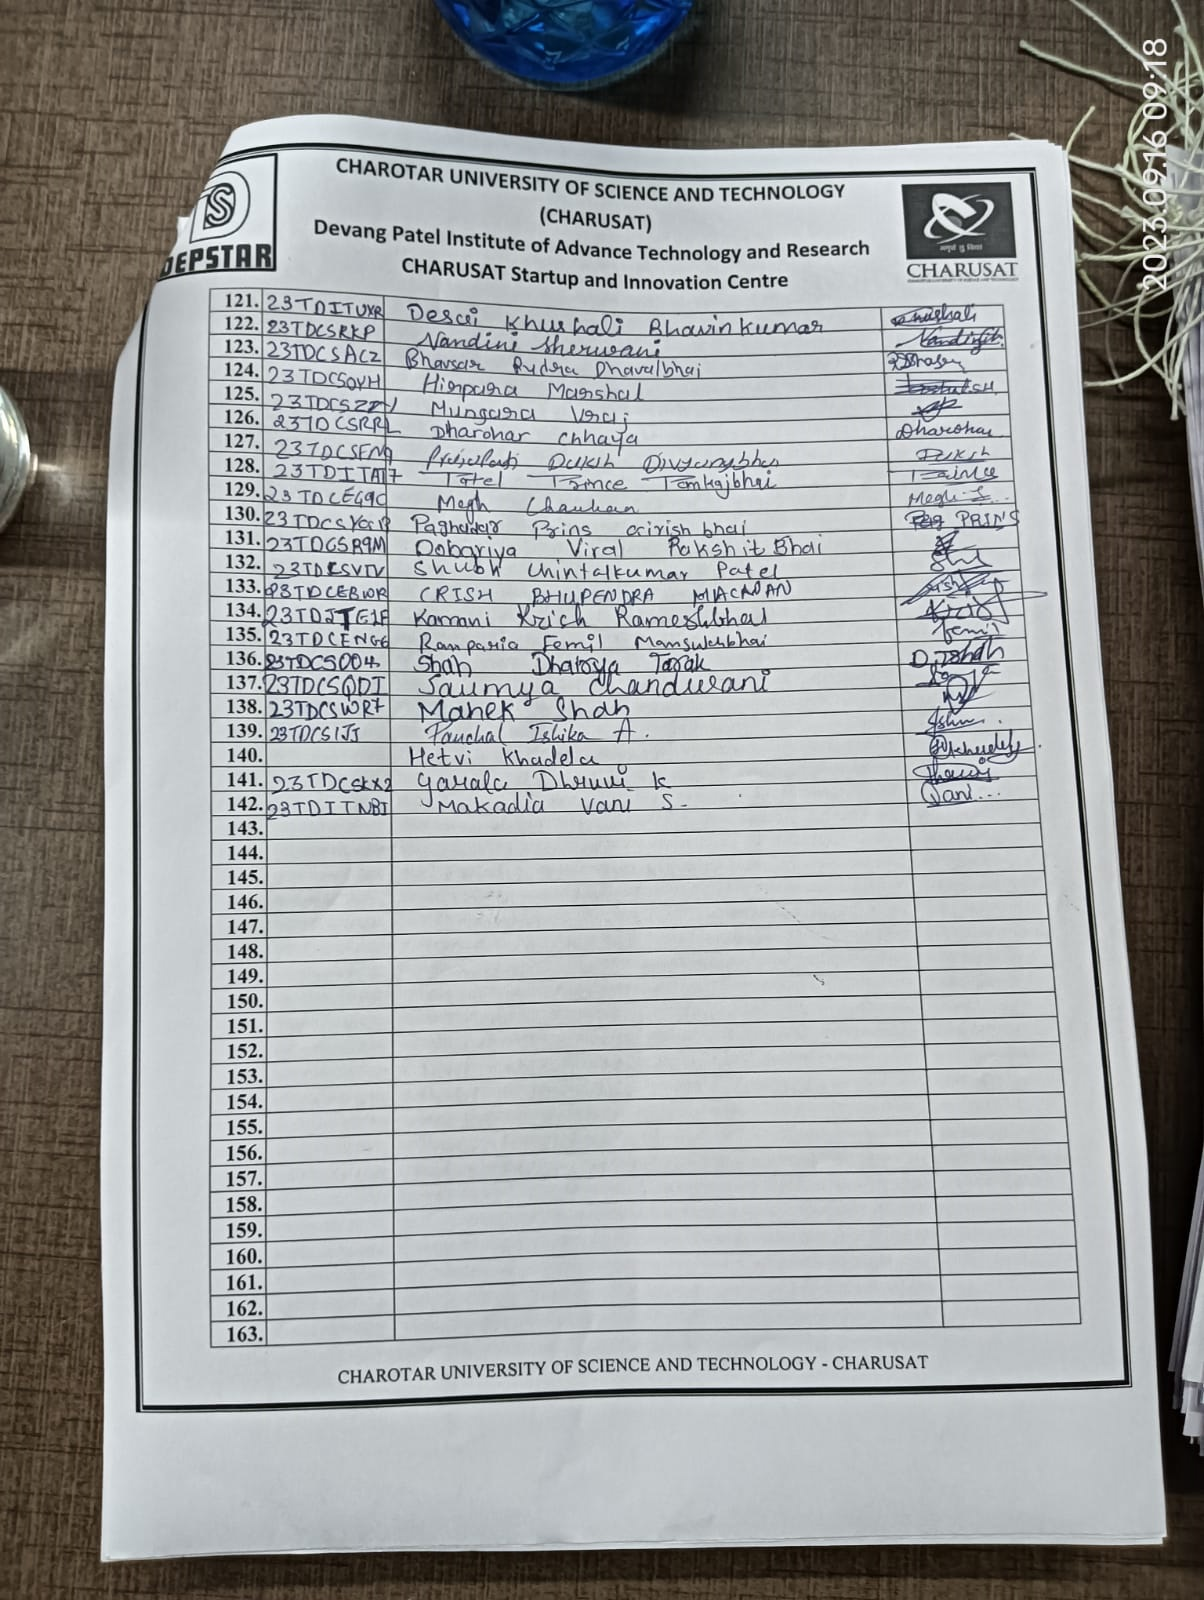 2023.09.16 09:18
DEPSTAR
CHAROTAR UNIVERSITY OF SCIENCE AND TECHNOLOGY
(CHARUSAT)
Devang Patel Institute of Advance Technology and Research
CHARUSAT Startup and Innovation Centre
CHARUSAT
121. 23TDITUXR Desai Khushali Bhavinkumar Khushali
122. 23TDCSRKP Nandini Sherwani
123. 23TDCSACZ Bhavsar Rudra Dhavalbhai
124. 23TDCSQVH Hirpara Marshal
125. Mungara Vraj
126. 23TDCSRRL Dharohar Chhaya Dharohar
127. 23TDCSFNG Prajapati Daksh Divyangbhai Daksh
128. 23TDITAT7 Patel Prince Pankajbhai Prince
129. 23TDCEG9C Megh Chauhan
130. Paghadar Prins Girish bhai PRINS
131. 23TDCSR9M Dobariya Viral Rakshit Bhai
132. 23TDCSVTV Shubh Chintalkumar Patel
133. 23TDCEBWR CRISH BHUPENDRA MACWAN
134. 23TDITE1F Kamani Krich Rameshbhai
135. 23TDCENG6 Ramparia Femil Mansukhbhai Femil
136. 23TDCSO04 Shah Dhairya Tarak D.T.Shah
137. 23TDCSQDI Saumya Chandwani
138. 23TDCSWR7 Mahek Shah
139. 23TDCSIJJ Panchal Ishika A.
140. Hetvi Khadela
141. 23TDCSKX2 Garala Dhruvi K
142. 23TDITNBI Makadia Vani S. Vani...
143.
144.
145.
146.
147.
148.
149.
150.
151.
152.
153.
154.
155.
156.
157.
158.
159.
160.
161.
162.
163.
CHAROTAR UNIVERSITY OF SCIENCE AND TECHNOLOGY - CHARUSAT